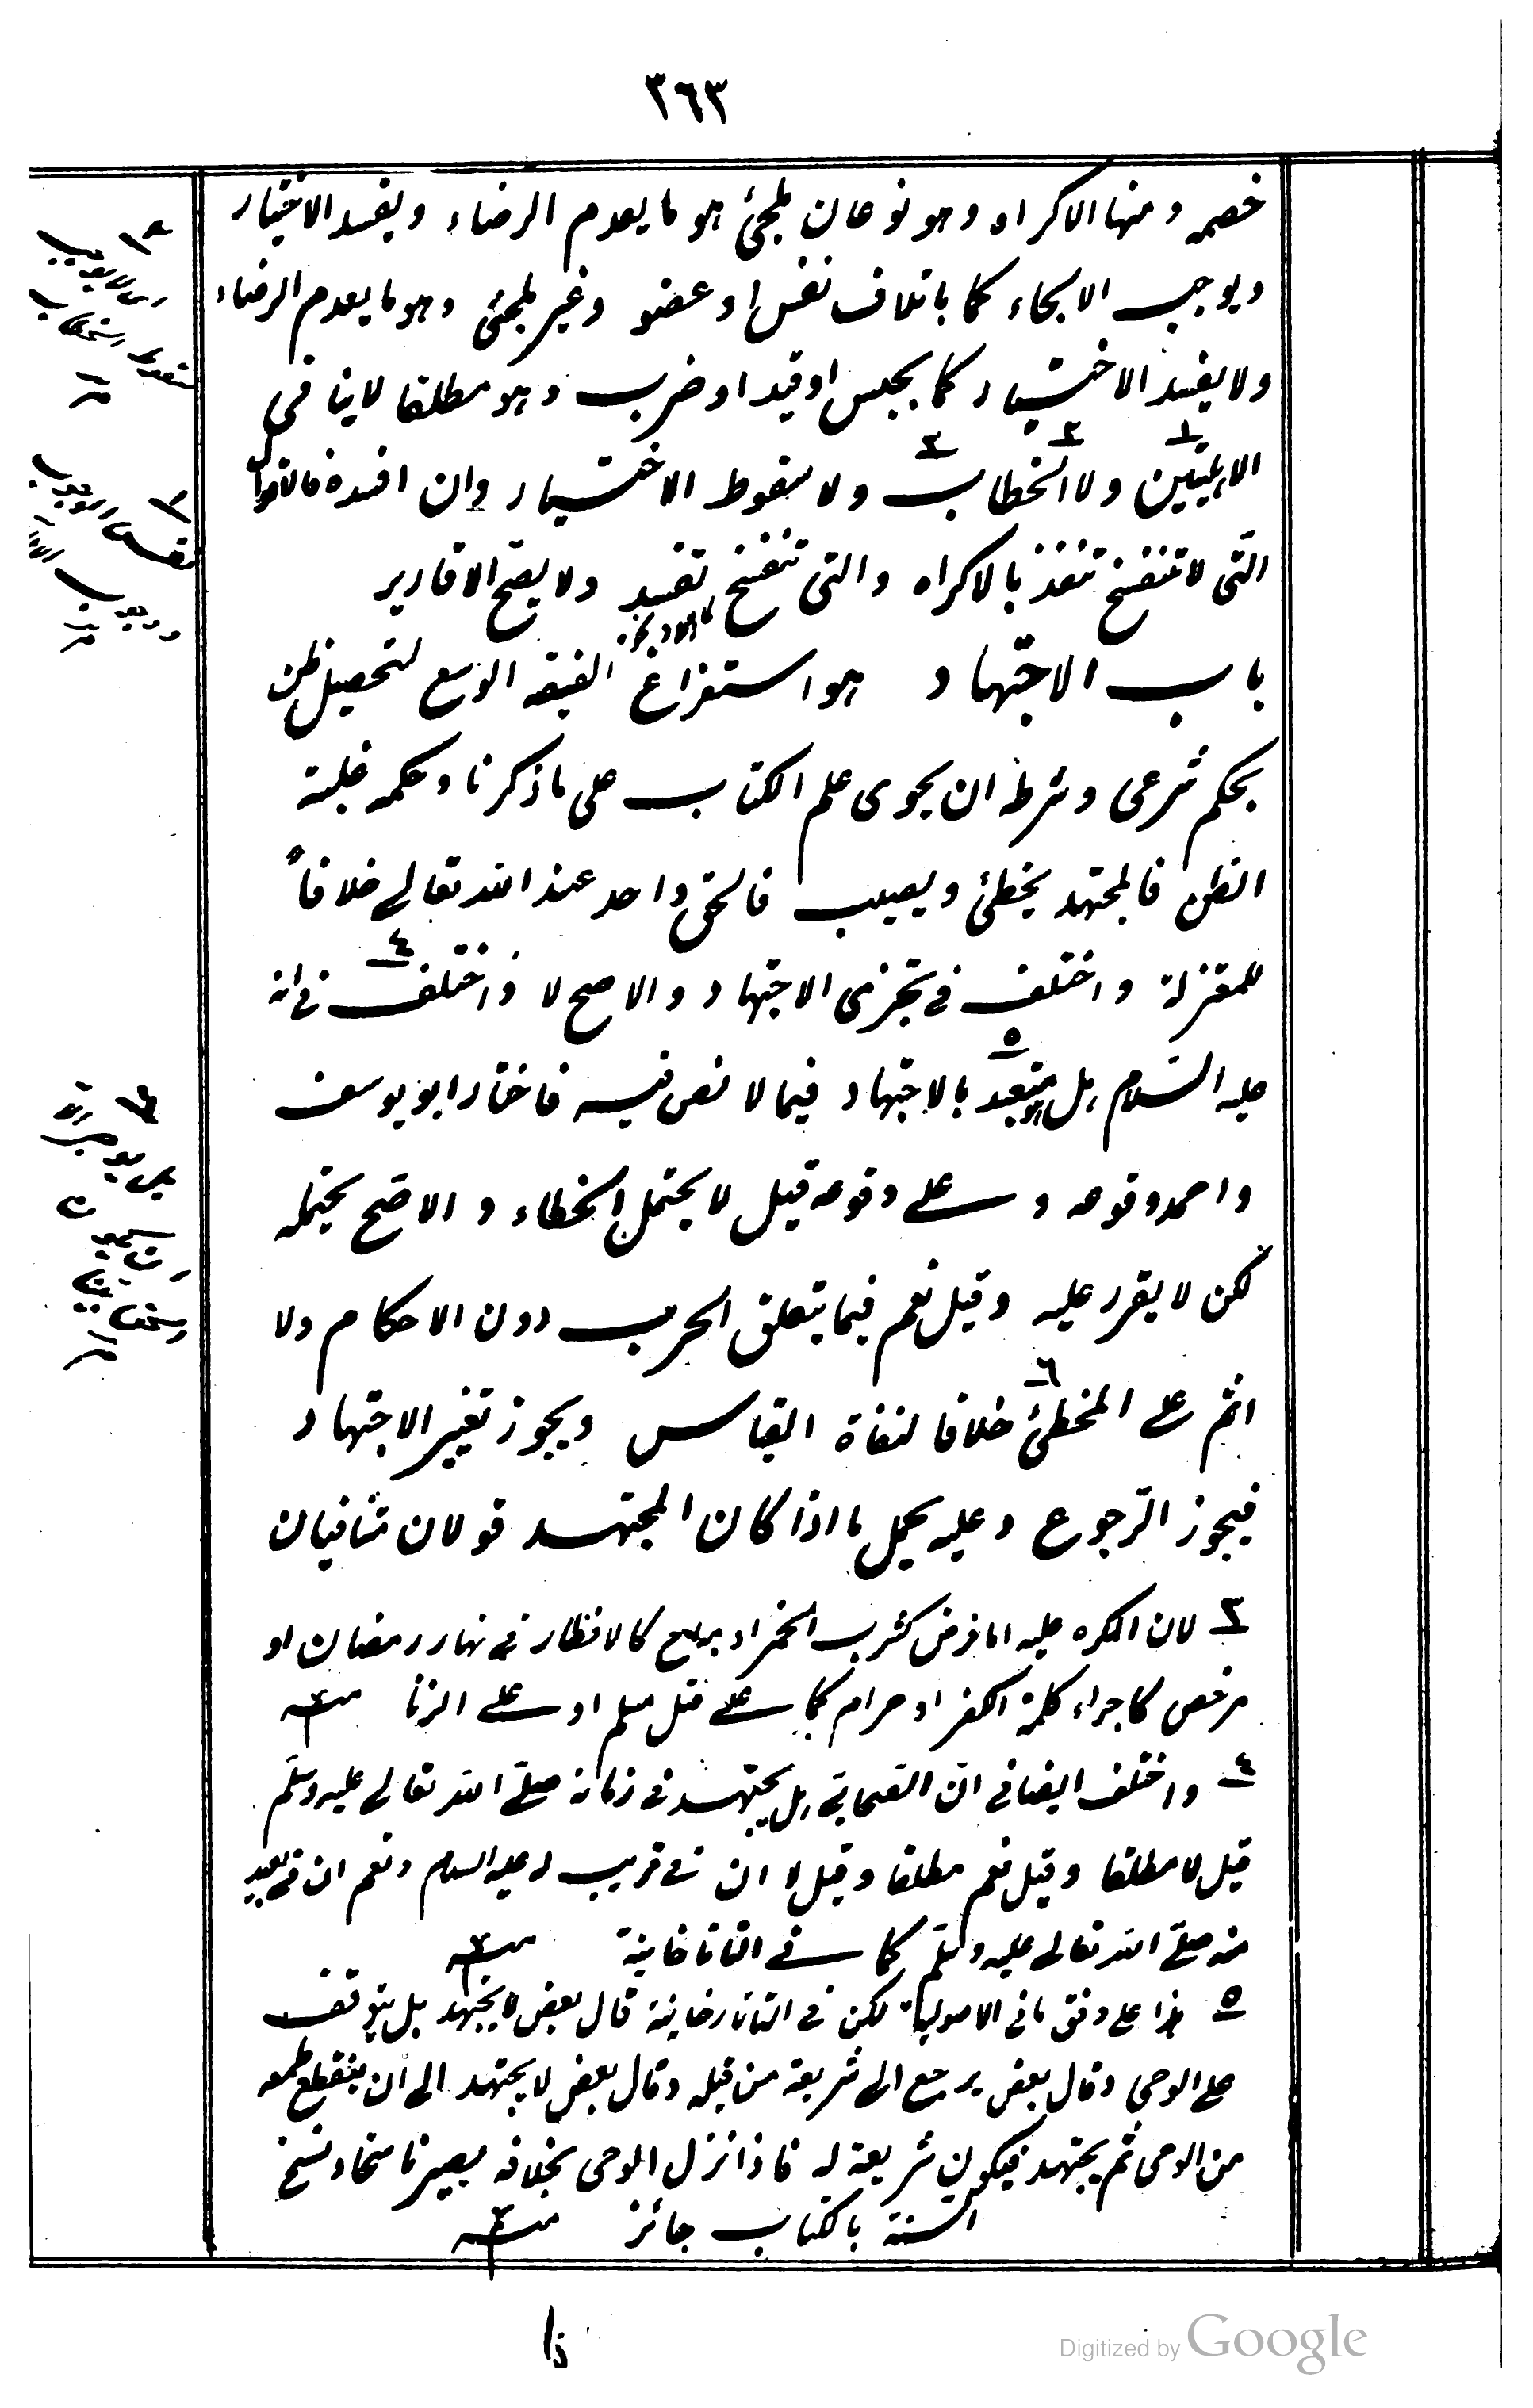 ٣٦٣
خصمه ومنها الاكراه وهو نوعان ملجئ هو ما يعدم الرضاء ويفسد الاختيار
ويوجب الالجاء كما باتلاف نفس او عضو وغير ملجئ وهو ما يعدم الرضاء
ولا يفسد الاختيار كما بحبس او قيد او ضرب وهو مطلقا لا ينافى
الاهليتين ١ ولا الخطاب ٢ ٣ ولا سقوط الاختيار وان افسده فالاقوال
الّتى لا تنفسخ تنفذ بالاكراه والتى تنفسخ تفسد ولا يصح الاقارير
باب الاجتهاد هو استفراغ الفقيه الوسع لتحصيل ظن
بحكم شرعى وشرطه ان يحوى علم الكتاب على ما ذكرنا وحكمه غلبة
الظن فالمجتهد يخطئ ويصيب فالحق واحد عند الله تعالى خلافاً
للمعتزلة واختلف فى تجزى الاجتهاد والاصح لا ٤ واختلف فى انه
عليه السّلام هل يتعبد ٥ بالاجتهاد فيما لا نص فيه فاختار ابو يوسف
واحمد وقوعه وعلى وقوعه قيل لا يحتمل الخطاء والاصح يحتمله
لكن لا يقرر عليه وقيل نعم فيما يتعلق الحرب دون الاحكام ولا
اثم على المخطئ ٦ خلافا لنفاة القياس ويجوز تغير الاجتهاد
فيجوز الرّجوع وعليه يحمل ما اذا كان المجتهد قولان متنافيان
٣ لان المكره عليه اما فرض كشرب الخمر او مباح كالافطار فى نهار رمضان او
مرخص كاجراء كلمة الكفر او حرام كما على قتل مسلم او على الزنا منه
٤ واختلف ايضا فى انّ الصّحابىّ هل يجتهد فى زمانه صلىّ الله تعالى عليه وسلّم
قيل لا مطلقا وقيل نعم مطلقا وقيل لا ان فى قريب له عليه السلام ونعم ان فى بعيد
منه صلىّ الله تعالى عليه وسلّم كما فى التاتارخانية منه
٥ هذا على وفق ما فى الاصولية لكن فى التاتارخانية قال بعض لا يجتهد بل يتوقف
على الوحى وقال بعض يرجع الى شريعة من قبله وقال بعض لا يجتهد الى ان ينقطع طمعه
من الوحى ثم يجتهد فيكون شريعة له فاذا نزل الوحى بخلافه يصير ناسخا ونسخ
السنة بالكتاب جائز منه
Digitized by Google